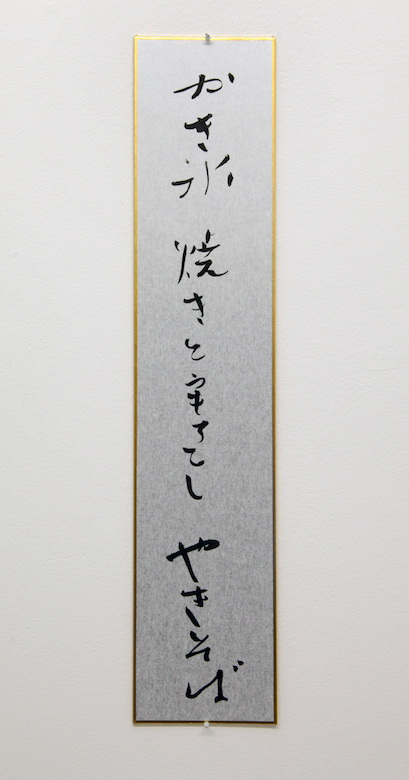 かき氷 焼きとうもろこし やきそば